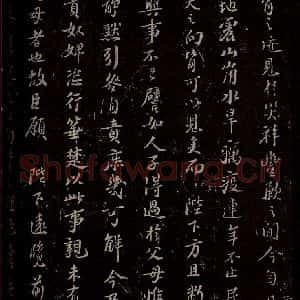 背之迹見於災祥豐歉之間今自
地震山崩水旱癘疫連年不止民
之向背可以見矣而陛下方且斷
興事不已譬如人子得過於父母惟
靜默引咎自責庶幾可解今乃
責奴婢恣行箠楚以此事親未有
母者也故臣願 陛下遠覽前
Shufawang.CN